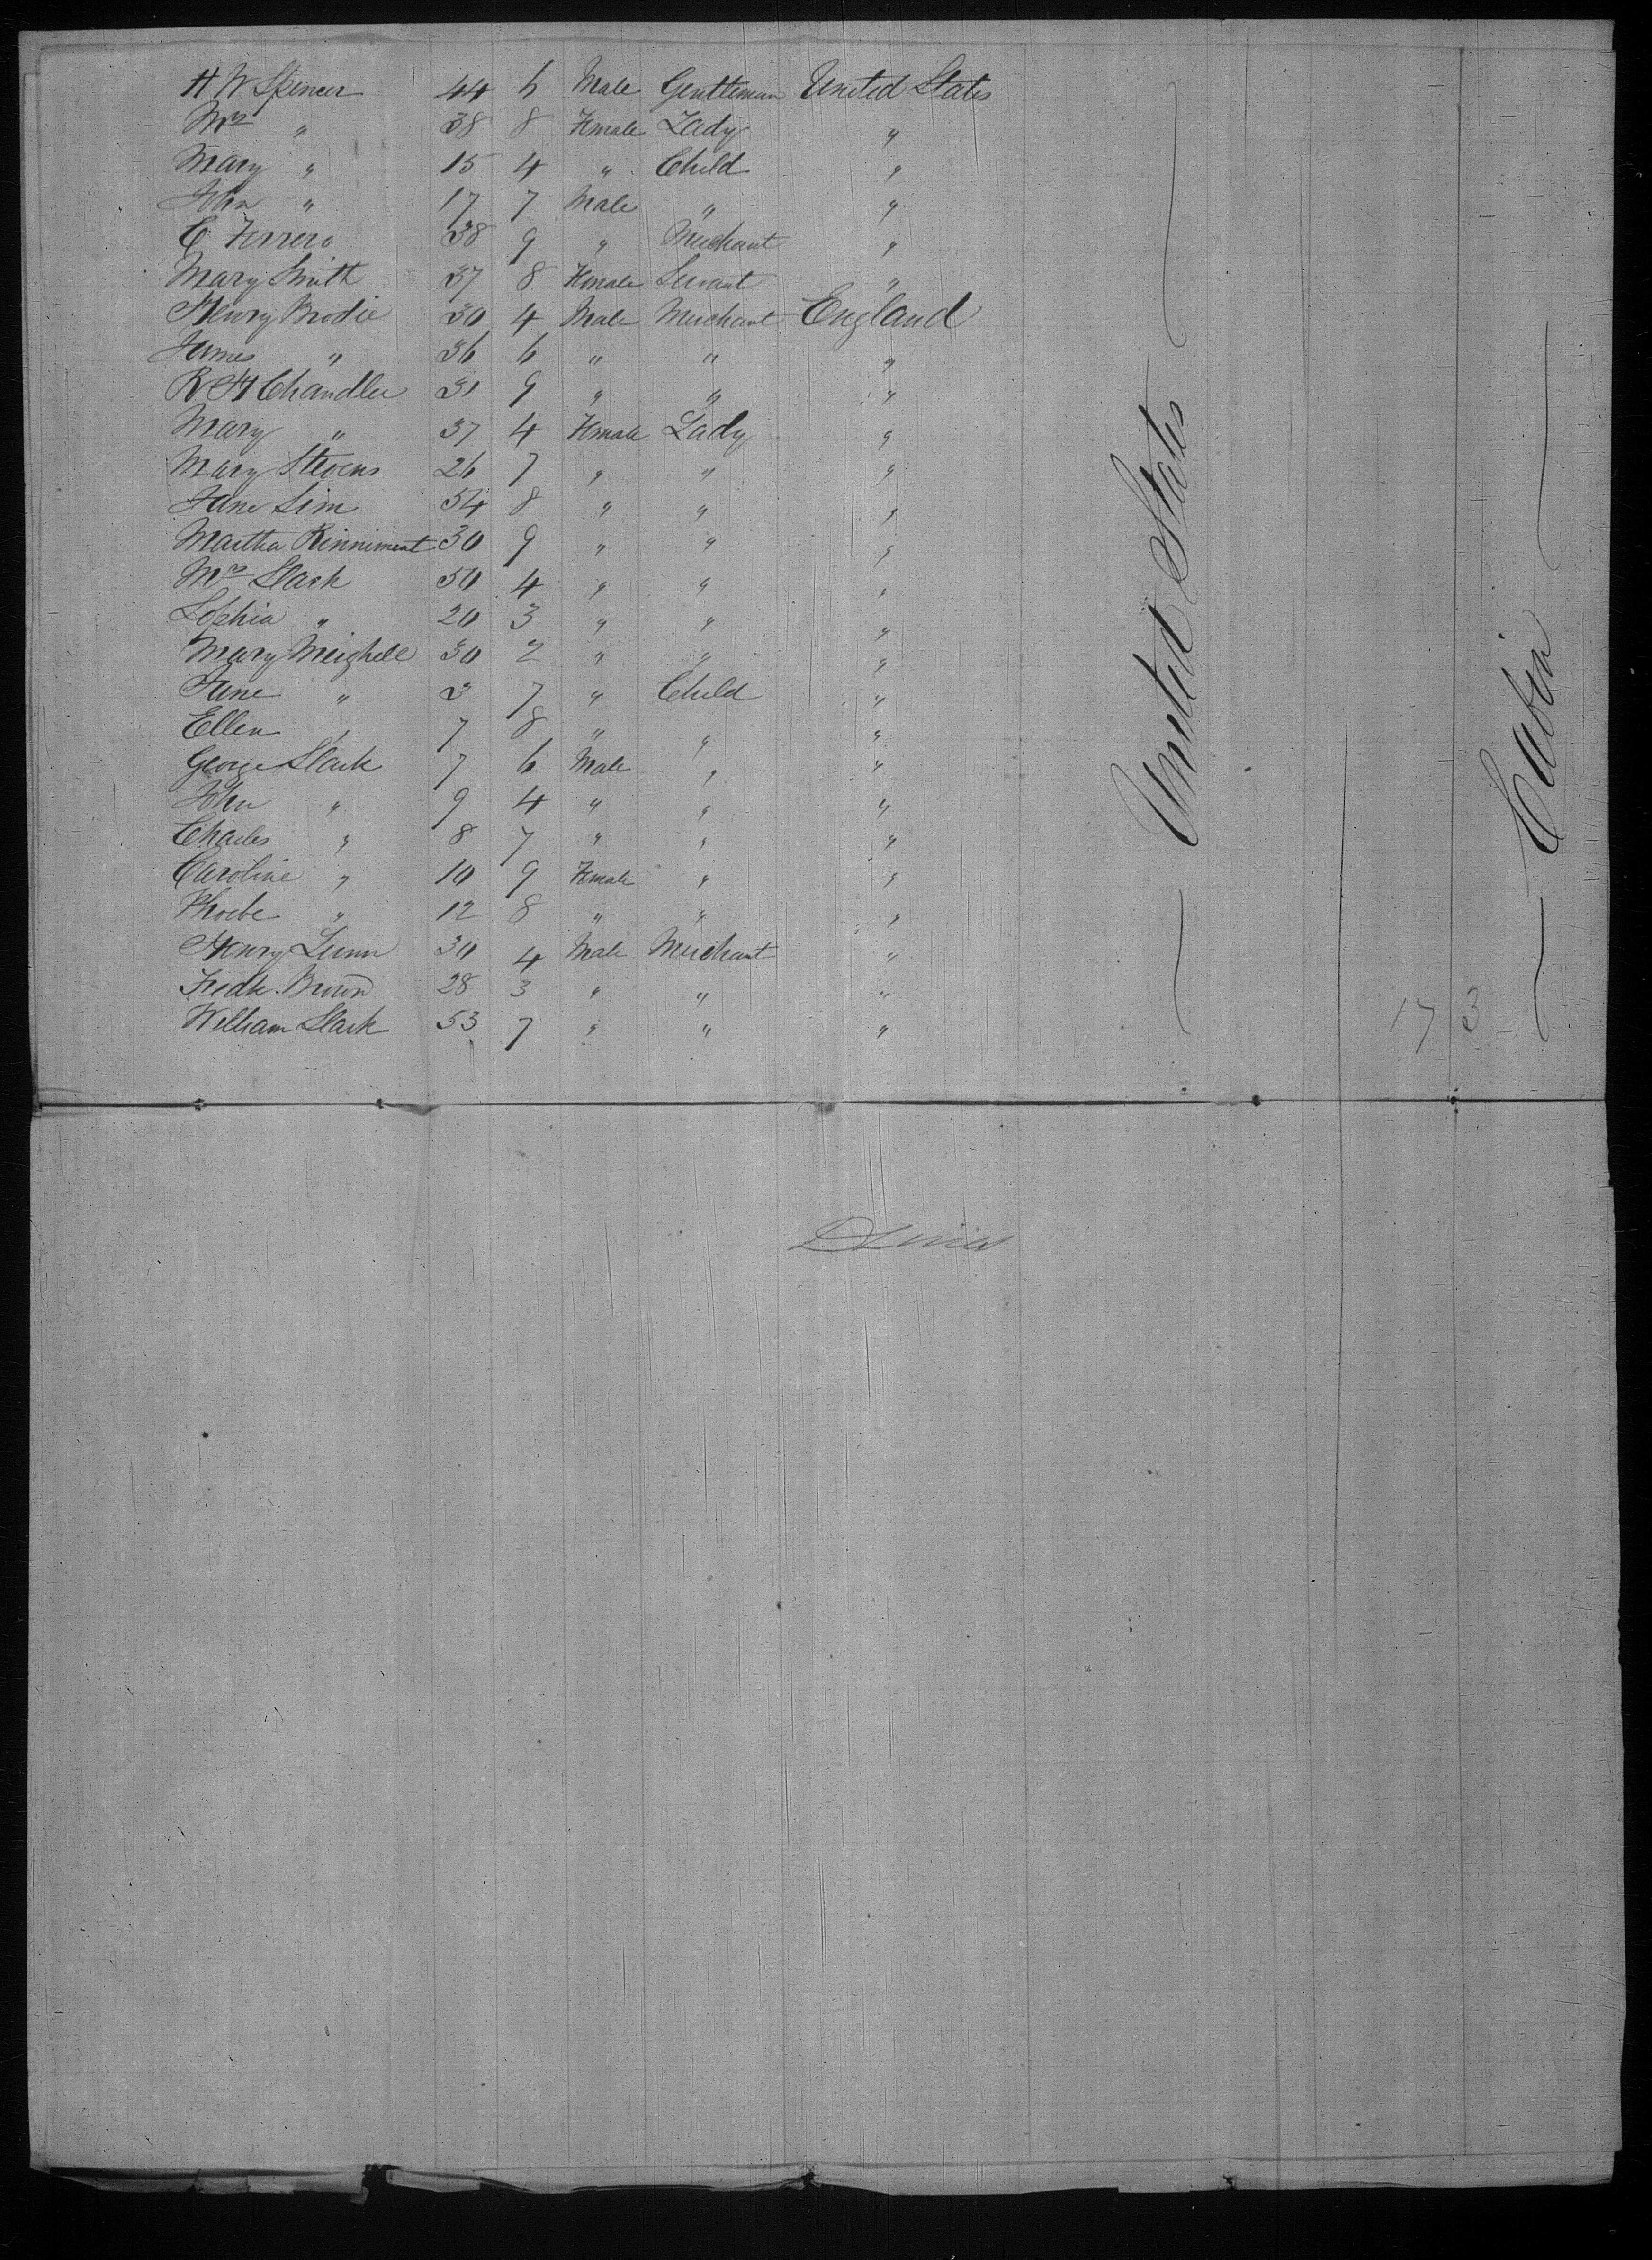 H W Spencer 44 6 Male Gentleman United States
Mrs " 38 8 Female Lady "
Mary " 15 4 " Child "
John " 17 7 Male " "
C Ferrero 38 9 " Merchant "
Mary Smith 37 8 Female Servant "
Henry Brodie 30 4 Male Merchant England
James " 36 6 " " "
R H Chandler 31 9 " " "
Mary " 37 4 Female Lady "
Mary Stevens 26 7 " " "
Jane Sim 54 8 " " "
Martha Rinniment 30 9 " " "
Mrs Slack 50 4 " " "
Sophia " 20 3 " " "
Mary Meighell 30 2 " " "
Jane " 3 7 " Child "
Ellen " 7 8 " " "
George Slack 7 6 Male " "
John " 9 4 " " "
Charles " 8 7 " " "
Caroline " 10 9 Female " "
Phoebe " 12 8 " " "
Henry Lunn 30 4 Male Merchant "
Fredk. Brown 28 3 " " "
William Slack 53 7 " " "
United States
173
Cabin